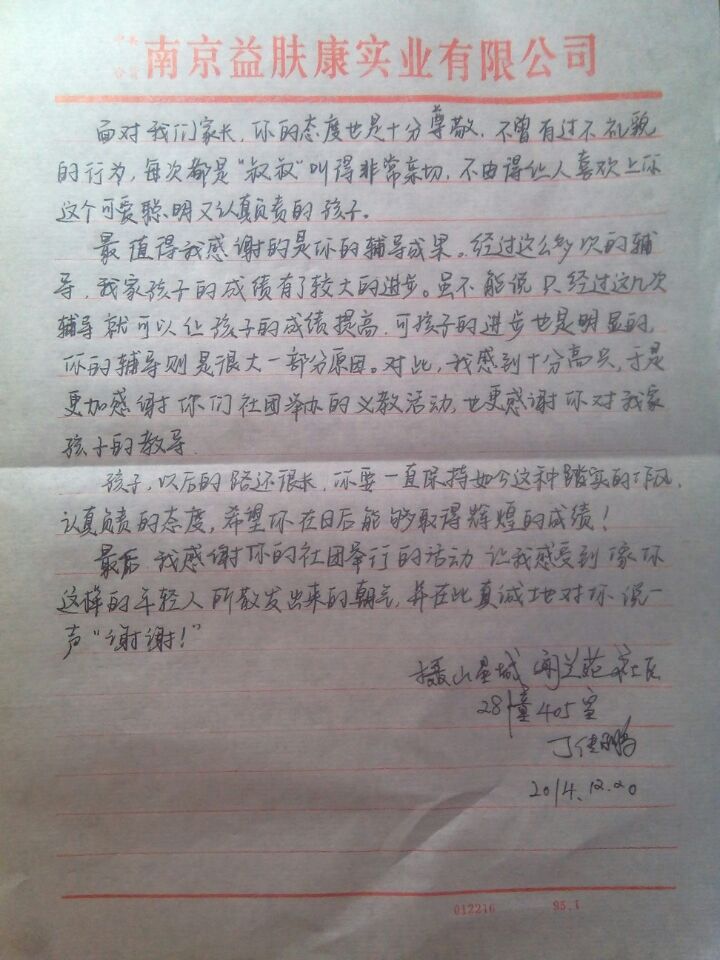 南京益肤康实业有限公司
面对我们家长,你的态度也是十分尊敬,不曾有过不礼貌
的行为,每次都是“叔叔”叫得非常亲切,不由得让人喜欢上你
这个可爱聪明又认真负责的孩子。
最值得我感谢的是你的辅导成果。经过这么多次的辅
导,我家孩子的成绩有了较大的进步。虽不能说只经过这几次
辅导就可以让孩子的成绩提高,可孩子的进步也是明显的,
你的辅导则是很大一部分原因。对此,我感到十分高兴,于是
更加感谢你们社团举办的义教活动,也更感谢你对我家
孩子的教导.
孩子,以后的路还很长,你要一直保持如今这种踏实的作风,
认真负责的态度,希望你在日后能够取得辉煌的成绩!
最后 我感谢你的社团举行的活动 让我感受到像你
这样的年轻人所散发出来的朝气,并在此真诚地对你说一
声“谢谢!”
摄山星城 闻兰苑 社区
28幢405室
丁佳鹏
2014.12.20
012216 95.1